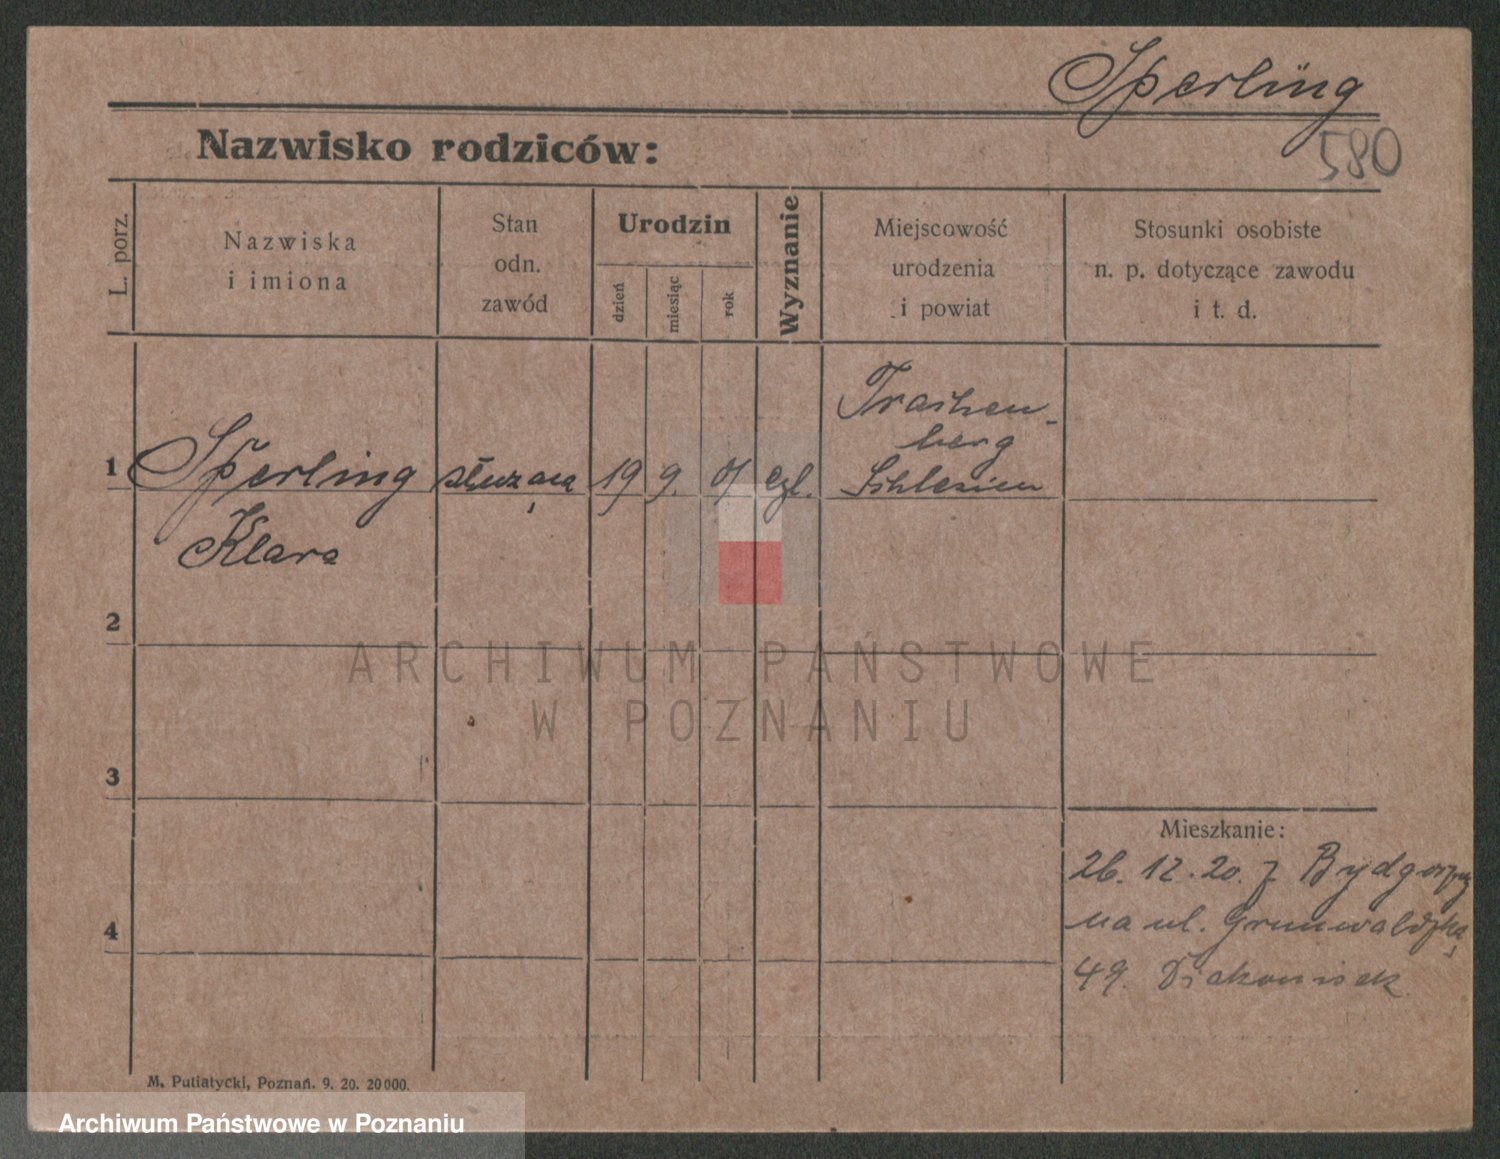 Sperling
580
Nazwisko rodziców:
L. porz.
Nazwiska
i imiona
Stan
odn.
zawód
Urodzin
dzień
miesiąc
rok
Wyznanie
Miejscowość
urodzenia
i powiat
Stosunki osobiste
n. p. dotyczące zawodu
i t. d.
1
Sperling
Klara
służąca
19
9.
01
egl.
Trachen-
berg
Schlesien
2
3
4
Mieszkanie:
26. 12. 20. z Bydgoszczy
na ul. Grunwaldzką
49. Diakonisek
M. Putiatycki, Poznań. 9. 20. 20 000.
ARCHIWUM PAŃSTWOWE
W POZNANIU
Archiwum Państwowe w Poznaniu